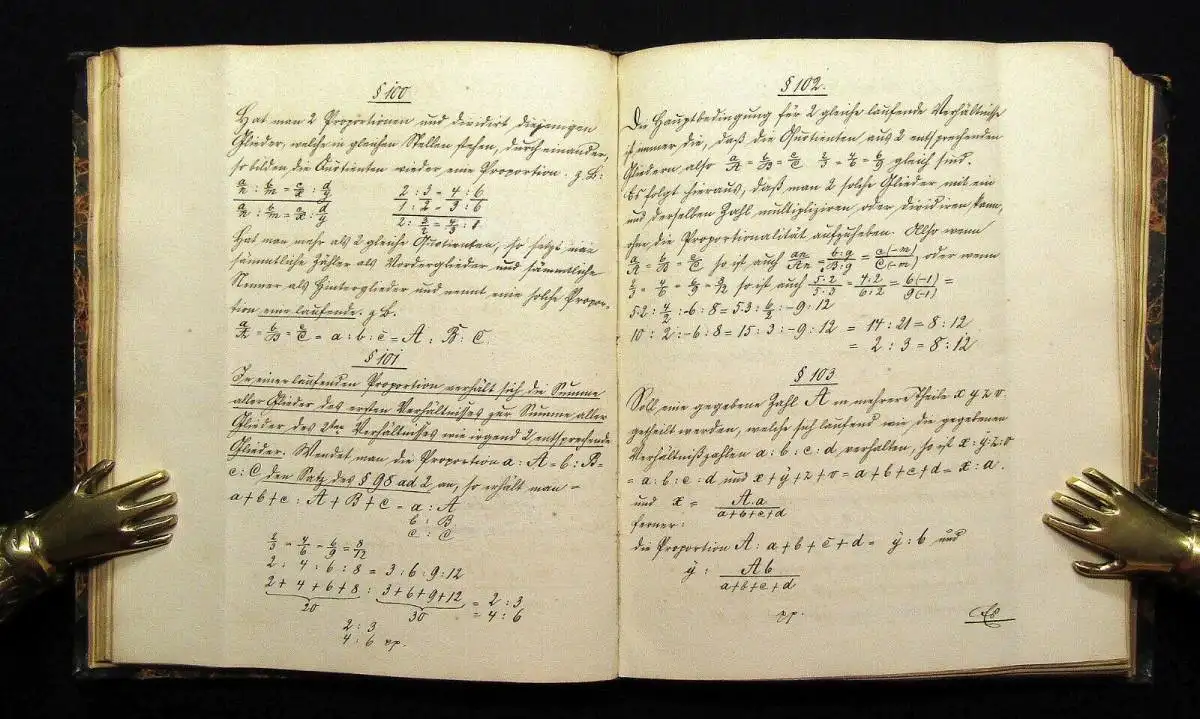 § 100
Hat man 2 Proportionen und dividirt diejenigen
Glieder, welche in gleichen Stellen stehen, durch einander,
so bilden die Quotienten wieder eine Proportion. z. B:
a/n : b/m = c/x : d/y
2 : 3 = 4 : 6
1 : 2 = 3 : 6
a/n : b/m = c/x : d/y
2 : 3/2 = 4/3 : 1
Hat man mehr als 2 gleiche Quotienten, so setzt man
sämmtliche Zähler als Vorderglieder und sämmtliche
Nenner als Hinterglieder und nennt eine solche Propor-
tion eine laufende. z. B.
a/A = b/B = c/C = a : b : c = A : B : C.
§ 101
In einer laufenden Proportion verhält sich die Summe
aller Glieder des ersten Verhältnisses zur Summe aller
Glieder des 2ten Verhältnisses wie irgend 2 entsprechende
Glieder. Wendet man die Proportion a : A = b : B =
c : C den Satz des § 98 ad 2 an, so erhält man =
a + b + c : A + B + C = a : A
b : B
c : C
2/3 = 4/6 = 6/9 = 8/12
2 : 4 : 6 : 8 = 3 : 6 : 9 : 12
2 + 4 + 6 + 8 : 3 + 6 + 9 + 12 = 2 : 3
20 30 = 4 : 6
2 : 3
4 : 6 pp.
§ 102.
Die Hauptbedingung für 2 gleiche laufende Verhältnisse
ist immer die, daß die Quotienten aus 2 entsprechenden
Gliedern also a/A = b/B = c/C 2/3 = 4/6 = 6/9 gleich sind.
Es folgt hieraus, daß man 2 solche Glieder mit ein
und derselben Zahl multipliziren oder dividiren kann,
ohne die Proportionalität aufzuheben. Also wenn
a/A = b/B = c/C so ist auch an/An = b:g/B:g = c(-m)/C(-m) oder wenn
2/3 = 4/6 = 6/9 = 8/12 so ist auch 5.2/5.3 = 4:2/6:2 = 6(-1)/9(-1) =
5.2 : 4/2 : -6 : 8 = 5.3 : 6/2 : -9 : 12
10 : 2 : -6 : 8 = 15 : 3 : -9 : 12 = 14 : 21 = 8 : 12
= 2 : 3 = 8 : 12
§ 103
Soll eine gegebene Zahl A in mehrere Theile x y z v
getheilt werden, welche sich laufend wie die gegebenen
Verhältnißzahlen a : b : c : d verhalten, so ist x : y : z : v
= a : b : c : d und x + y + z + v = a + b + c + d = x : a.
und x = A.a/a+b+c+d
ferner:
die Proportion A : a + b + c + d = y : b und
y : Ab/a+b+c+d
pp.
Es